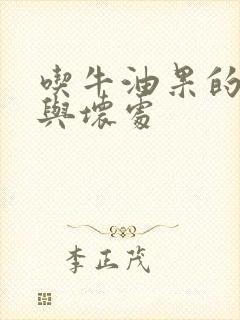 喫牛油果的
與壞處
李正茂